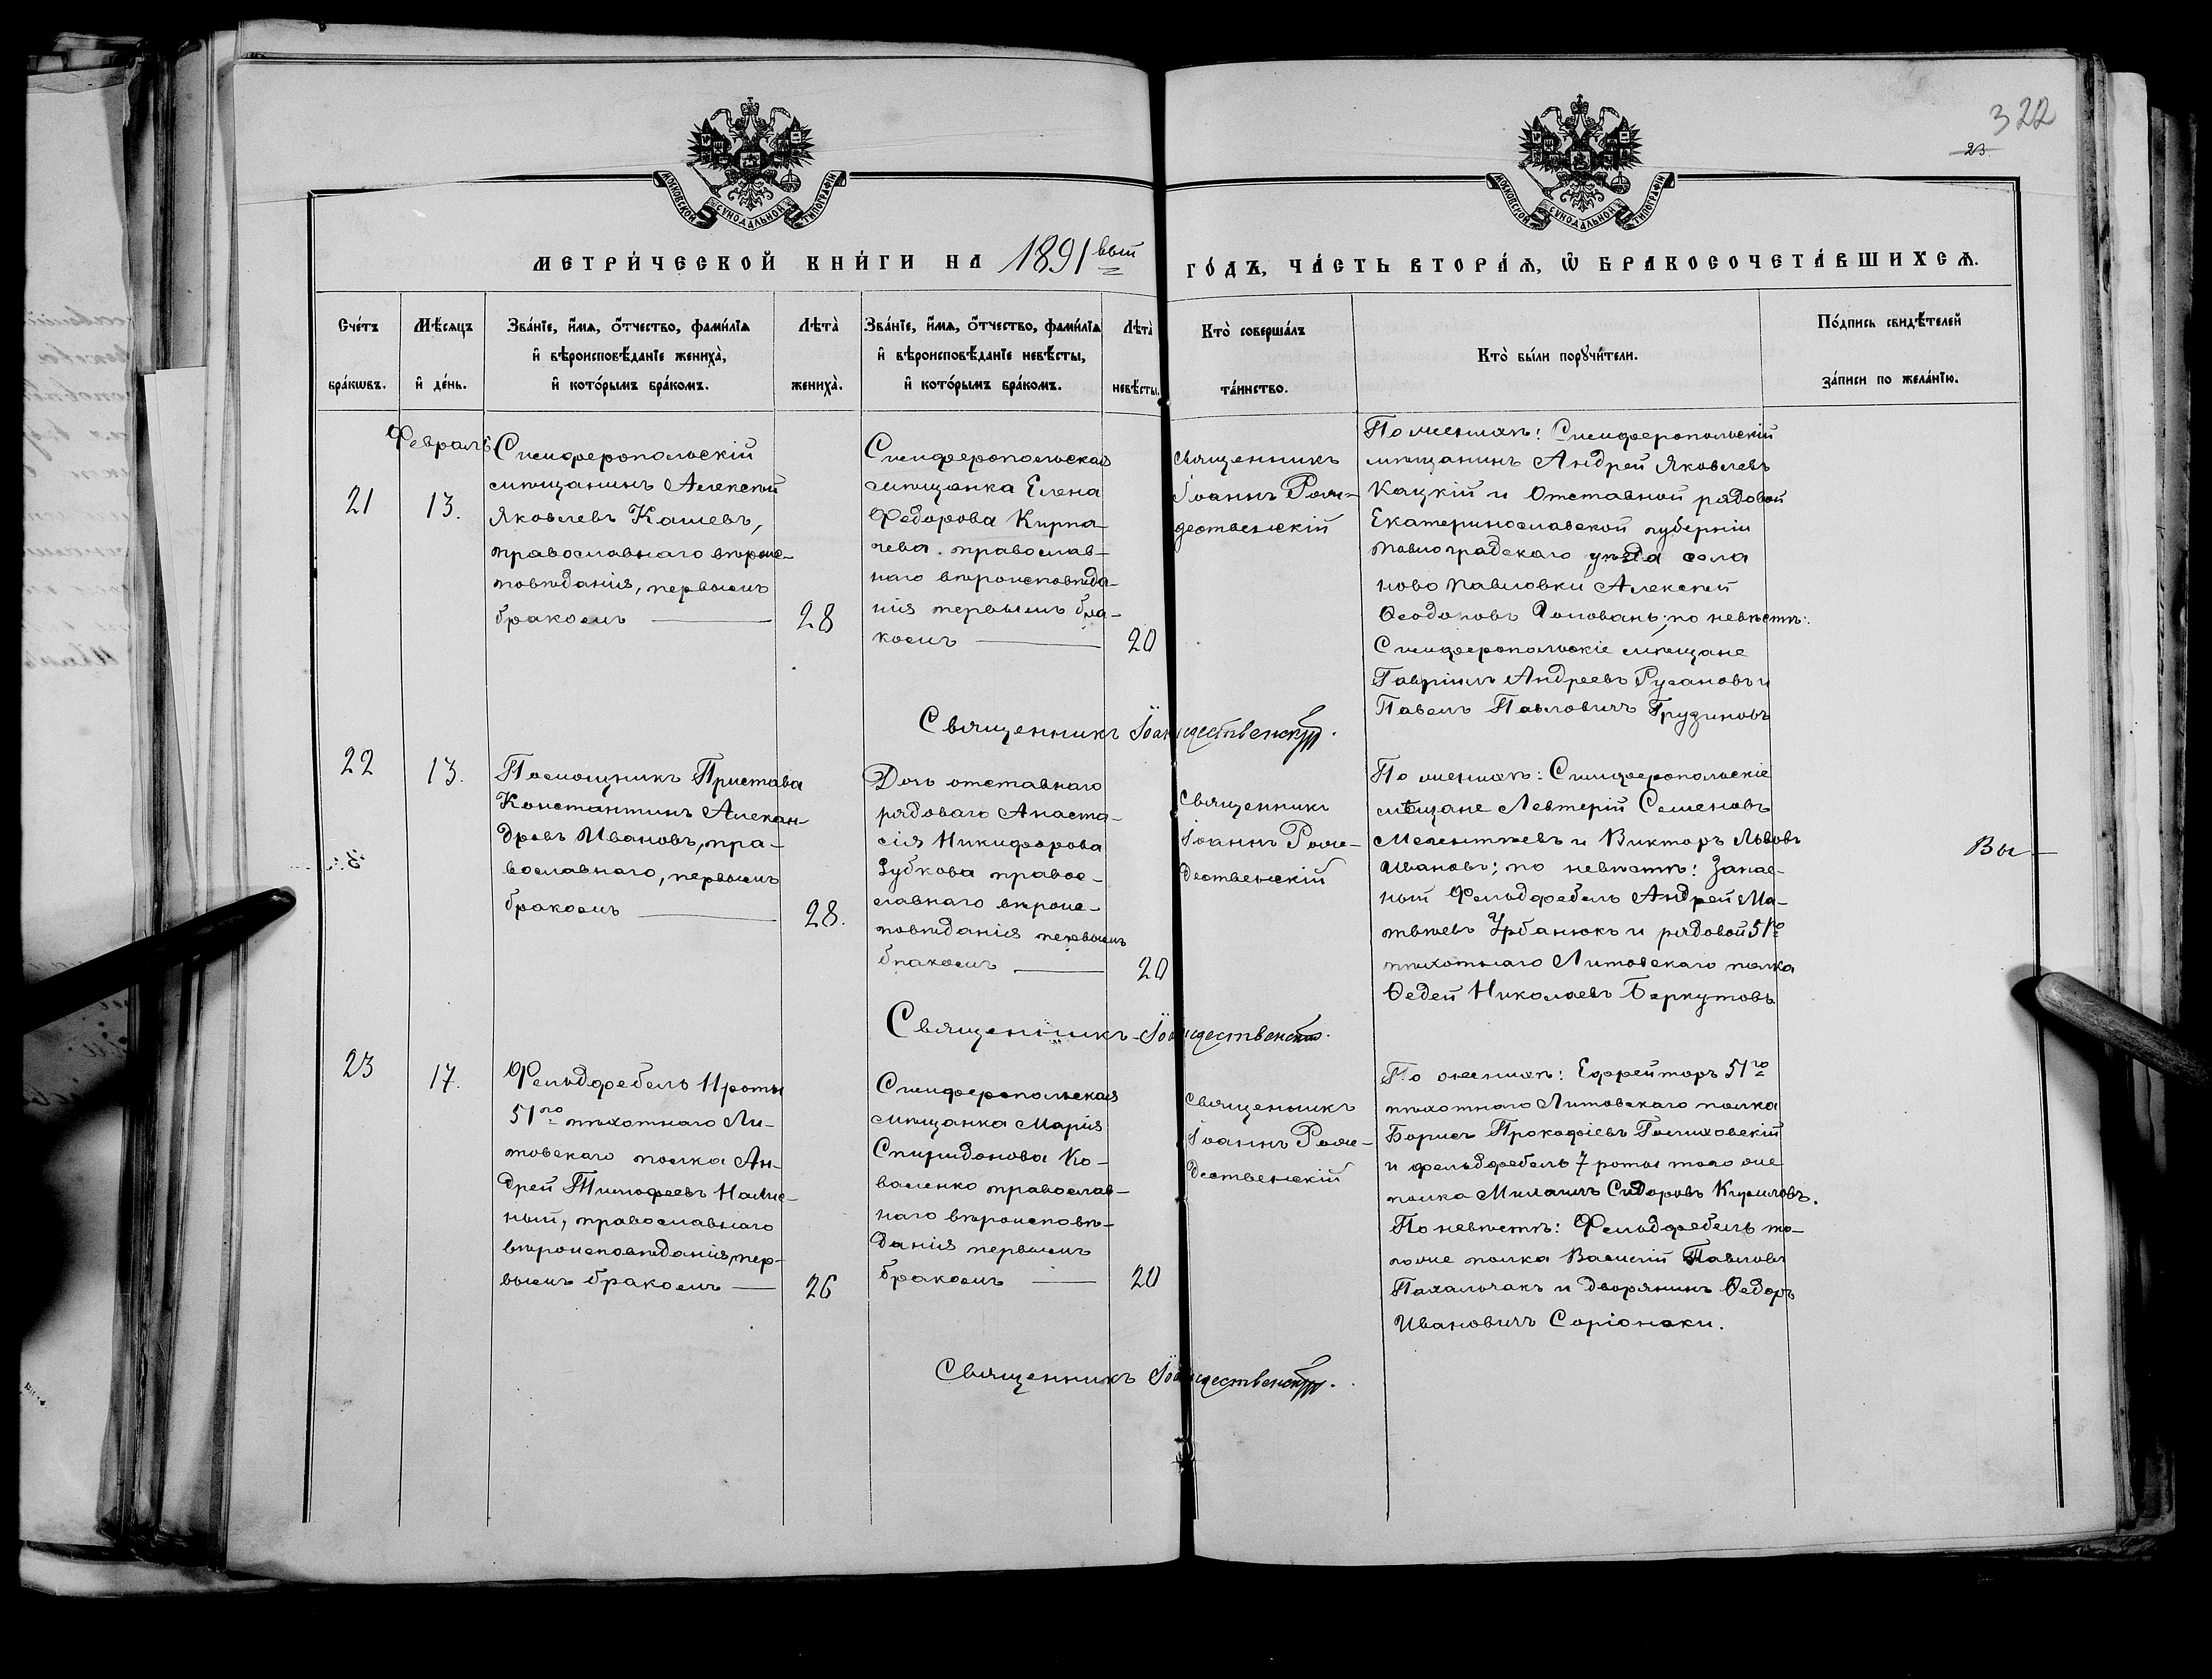 322
23.
МОСКОВСКОЙ СѴНОДАЛЬНОЙ ТИПОГРАФІИ
МОСКОВСКОЙ СѴНОДАЛЬНОЙ ТИПОГРАФІИ
МЕТРИ́ЧЕСКОЙ КНИ́ГИ НА 1891вый ГО́ДЪ, ЧА́СТЬ ВТОРА́Ѧ, Ѽ БРАКОСОЧЕТА́ВШИХСѦ.
Сче́тъ
бра́кѡвъ.
Мѣ́сѧцъ
и҆ де́нь.
Зва́нїе, и҆́мѧ, ѻ҆́тчество, фами́лїѧ
и҆ вѣроисповѣ́данїе жениха̀,
и҆ кото́рымъ бра́комъ.
Лѣта̀
жениха̀.
Зва́нїе, и҆́мѧ, ѻ҆́тчество, фами́лїѧ
и҆ вѣроисповѣ́данїе невѣ́сты,
и҆ кото́рымъ бра́комъ.
Лѣта̀
невѣ́сты.
Кто̀ соверша́лъ
та́инство.
Кто̀ бы́ли порꙋчи́тели.
По́дпись свидѣ́телей
за́писи по жела́нїю.
Февраль
21
13.
Симферопольскій
мѣщанинъ Алексѣй
Яковлевъ Кашевъ,
православнаго вѣроис-
повѣданія, первымъ
бракомъ
28
Симферопольская
мѣщанка Елена
Федорова Кирпа-
чева. православ-
наго вѣроисповѣда-
нія первымъ бра-
комъ
20
Священникъ
Іоаннъ Рож-
дественскій
По женихѣ: Симферопольскій
мѣщанинъ Андрей Яковлевъ
Кацкій и Отставной рядовой
Екатеринославской губерніи
Павлоградскаго уѣзда села
ново Павловки Алексѣй
Ѳеодоровъ Головань; по невѣстѣ:
Симферопольскіе мѣщане
Гавріилъ Андреевъ Русановъ и
Павелъ Павловичъ Грузиновъ
Священникъ Іоан дественскій.
22
13.
Помощникъ Пристава
Константинъ Алексан-
дровъ Ивановъ, пра-
вославнаго, первымъ
бракомъ
28.
Дочь отставнаго
рядоваго Анаста-
сія Никифорова
Зубкова правос-
лавнаго вѣроис-
повѣданія первымъ
бракомъ
20
Священникъ
Іоаннъ Рож-
дественскій
По женихѣ: Симферопольскіе
мѣщане Левтерій Семеновъ
Мелентьевъ и Викторъ Львовъ
Ивановъ; по невѣстѣ: Запас-
ный Фельдфебель Андрей Ма-
твѣевъ Урбанюкъ и рядовой 51го
пѣхотнаго Литовскаго полка
Ѳедей Николаевъ Беркутовъ
Вы
Священникъ Іоа дественскій.
23
17.
Фельдфебель 11 роты
51го пѣхотнаго Ли-
товскаго полка Ан-
дрей Тимофеевъ
православнаго
вѣроисповѣданія, пер-
вымъ бракомъ
26
Симферопольская
мѣщанка Марія
Спиридонова Ко-
валенко православ-
наго вѣроисповѣ-
данія первымъ
бракомъ
20
Священникъ
Іоаннъ Рож-
дественскій
По женихѣ: Ефрейторъ 51го
пѣхотнаго Литовскаго полка
Борисъ Прокофіевъ Голиховскій
и фельдфебель 7 роты того же
полка Михаилъ Сидоровъ Кириловъ.
По невѣстѣ: Фельдфебель то-
гоже полка Василій Павловъ
Пахалочакъ и дворянинъ Ѳедоръ
Ивановичъ Соріонаки.
Священникъ Іоа дественскій.